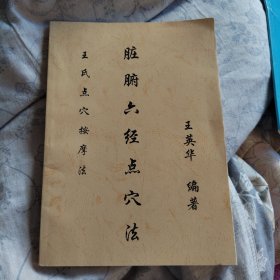 王氏点穴按摩法
脏腑六经点穴法
王英华 编著